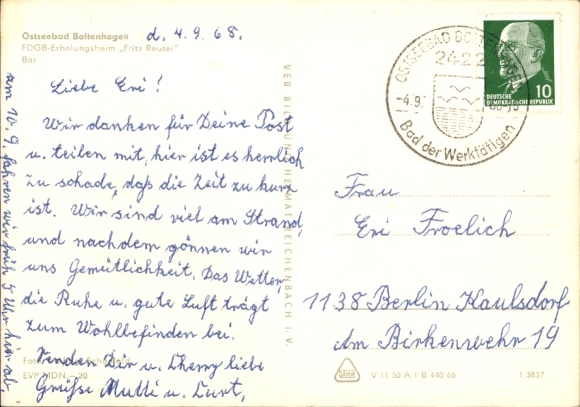 Ostseebad Boltenhagen
FDGB-Erholungsheim „Fritz Reuter"
Bar
d. 4.9.68.
Liebe Eri!
Wir danken für Deine Post
u. teilen mit, hier ist es herrlich
zu schade, daß die Zeit zu kurz
ist. Wir sind viel am Strand,
und nachdem gönnen wir
uns Gemütlichkeit. Das Wetter
die Ruhe u. gute Luft trägt
zum Wohlbefinden bei.
Senden Dir u. Cherry liebe
Grüße Mutti u. Curt,
am 10.9. fahren wir früh 5 Uhr hier ab.
Foto
EVP MDN –20
VEB BILD U. HEIMAT REICHENBACH I. V.
OSTSEEBAD BOLTENHAGEN
2422
-4.9.
Bad der Werktätigen
DEUTSCHE
DEMOKRATISCHE REPUBLIK
10
Frau
Eri Froelich
1138 Berlin Kaulsdorf
Am Birkenwehr 19
V 11 50 A 1 B 440 66
1 3837